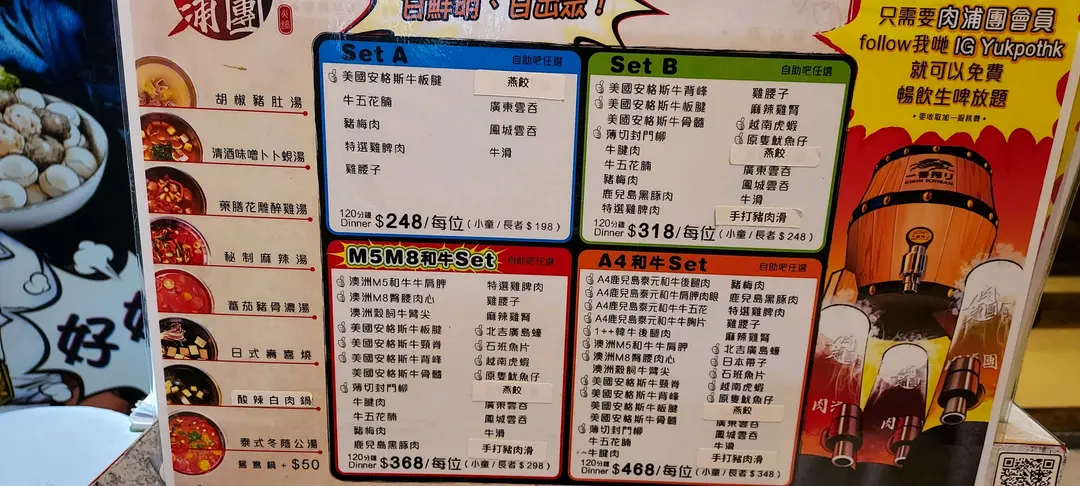 浦團
火鍋
百鮮明、百出眾！
只需要肉浦團會員
follow我哋 IG Yukpothk
就可以免費
暢飲生啤放題
・要收取加一服務費・
胡椒豬肚湯
清酒味噌卜卜蜆湯
藥膳花雕醉雞湯
秘制麻辣湯
番茄豬骨濃湯
日式壽喜燒
酸辣白肉鍋
泰式冬蔭公湯
鴛鴦鍋 + $50
Set A
自助吧任選
美國安格斯牛板腱
牛五花腩
豬梅肉
特選雞脾肉
雞腰子
燕餃
廣東雲吞
鳳城雲吞
牛滑
120分鐘
Dinner $248/每位 (小童/長者 $198)
Set B
自助吧任選
美國安格斯牛背峰
美國安格斯牛板腱
美國安格斯牛骨髓
薄切封門柳
牛腱肉
牛五花腩
豬梅肉
鹿兒島黑豚肉
特選雞脾肉
雞腰子
麻辣雞腎
越南虎蝦
原隻魷魚仔
燕餃
廣東雲吞
鳳城雲吞
牛滑
手打豬肉滑
120分鐘
Dinner $318/每位 (小童/長者 $248)
M5M8和牛Set
自助吧任選
澳洲M5和牛牛肩胛
澳洲M8臀腰肉心
澳洲穀飼牛臂尖
美國安格斯牛板腱
美國安格斯牛頸脊
美國安格斯牛背峰
美國安格斯牛骨髓
薄切封門柳
牛腱肉
牛五花腩
豬梅肉
鹿兒島黑豚肉
特選雞脾肉
雞腰子
麻辣雞腎
北吉廣島蠔
石班魚片
越南虎蝦
原隻魷魚仔
燕餃
廣東雲吞
鳳城雲吞
牛滑
手打豬肉滑
120分鐘
Dinner $368/每位 (小童/長者 $298)
A4和牛Set
自助吧任選
A4鹿兒島泰元和牛後腿肉
A4鹿兒島泰元和牛肩胛肉眼
A4鹿兒島泰元和牛牛五花
A4鹿兒島泰元和牛牛胸片
1++韓牛後腿肉
澳洲M5和牛牛肩胛
澳洲M8臀腰肉心
澳洲穀飼牛臂尖
美國安格斯牛頸脊
美國安格斯牛背峰
美國安格斯牛板腱
美國安格斯牛骨髓
薄切封門柳
牛五花腩
牛腱肉
豬梅肉
鹿兒島黑豚肉
特選雞脾肉
雞腰子
麻辣雞腎
北吉廣島蠔
日本帶子
石班魚片
越南虎蝦
原隻魷魚仔
燕餃
廣東雲吞
鳳城雲吞
牛滑
手打豬肉滑
120分鐘
Dinner $468/每位 (小童/長者 $348)
一番搾り
KIRIN ICHIBAN
好